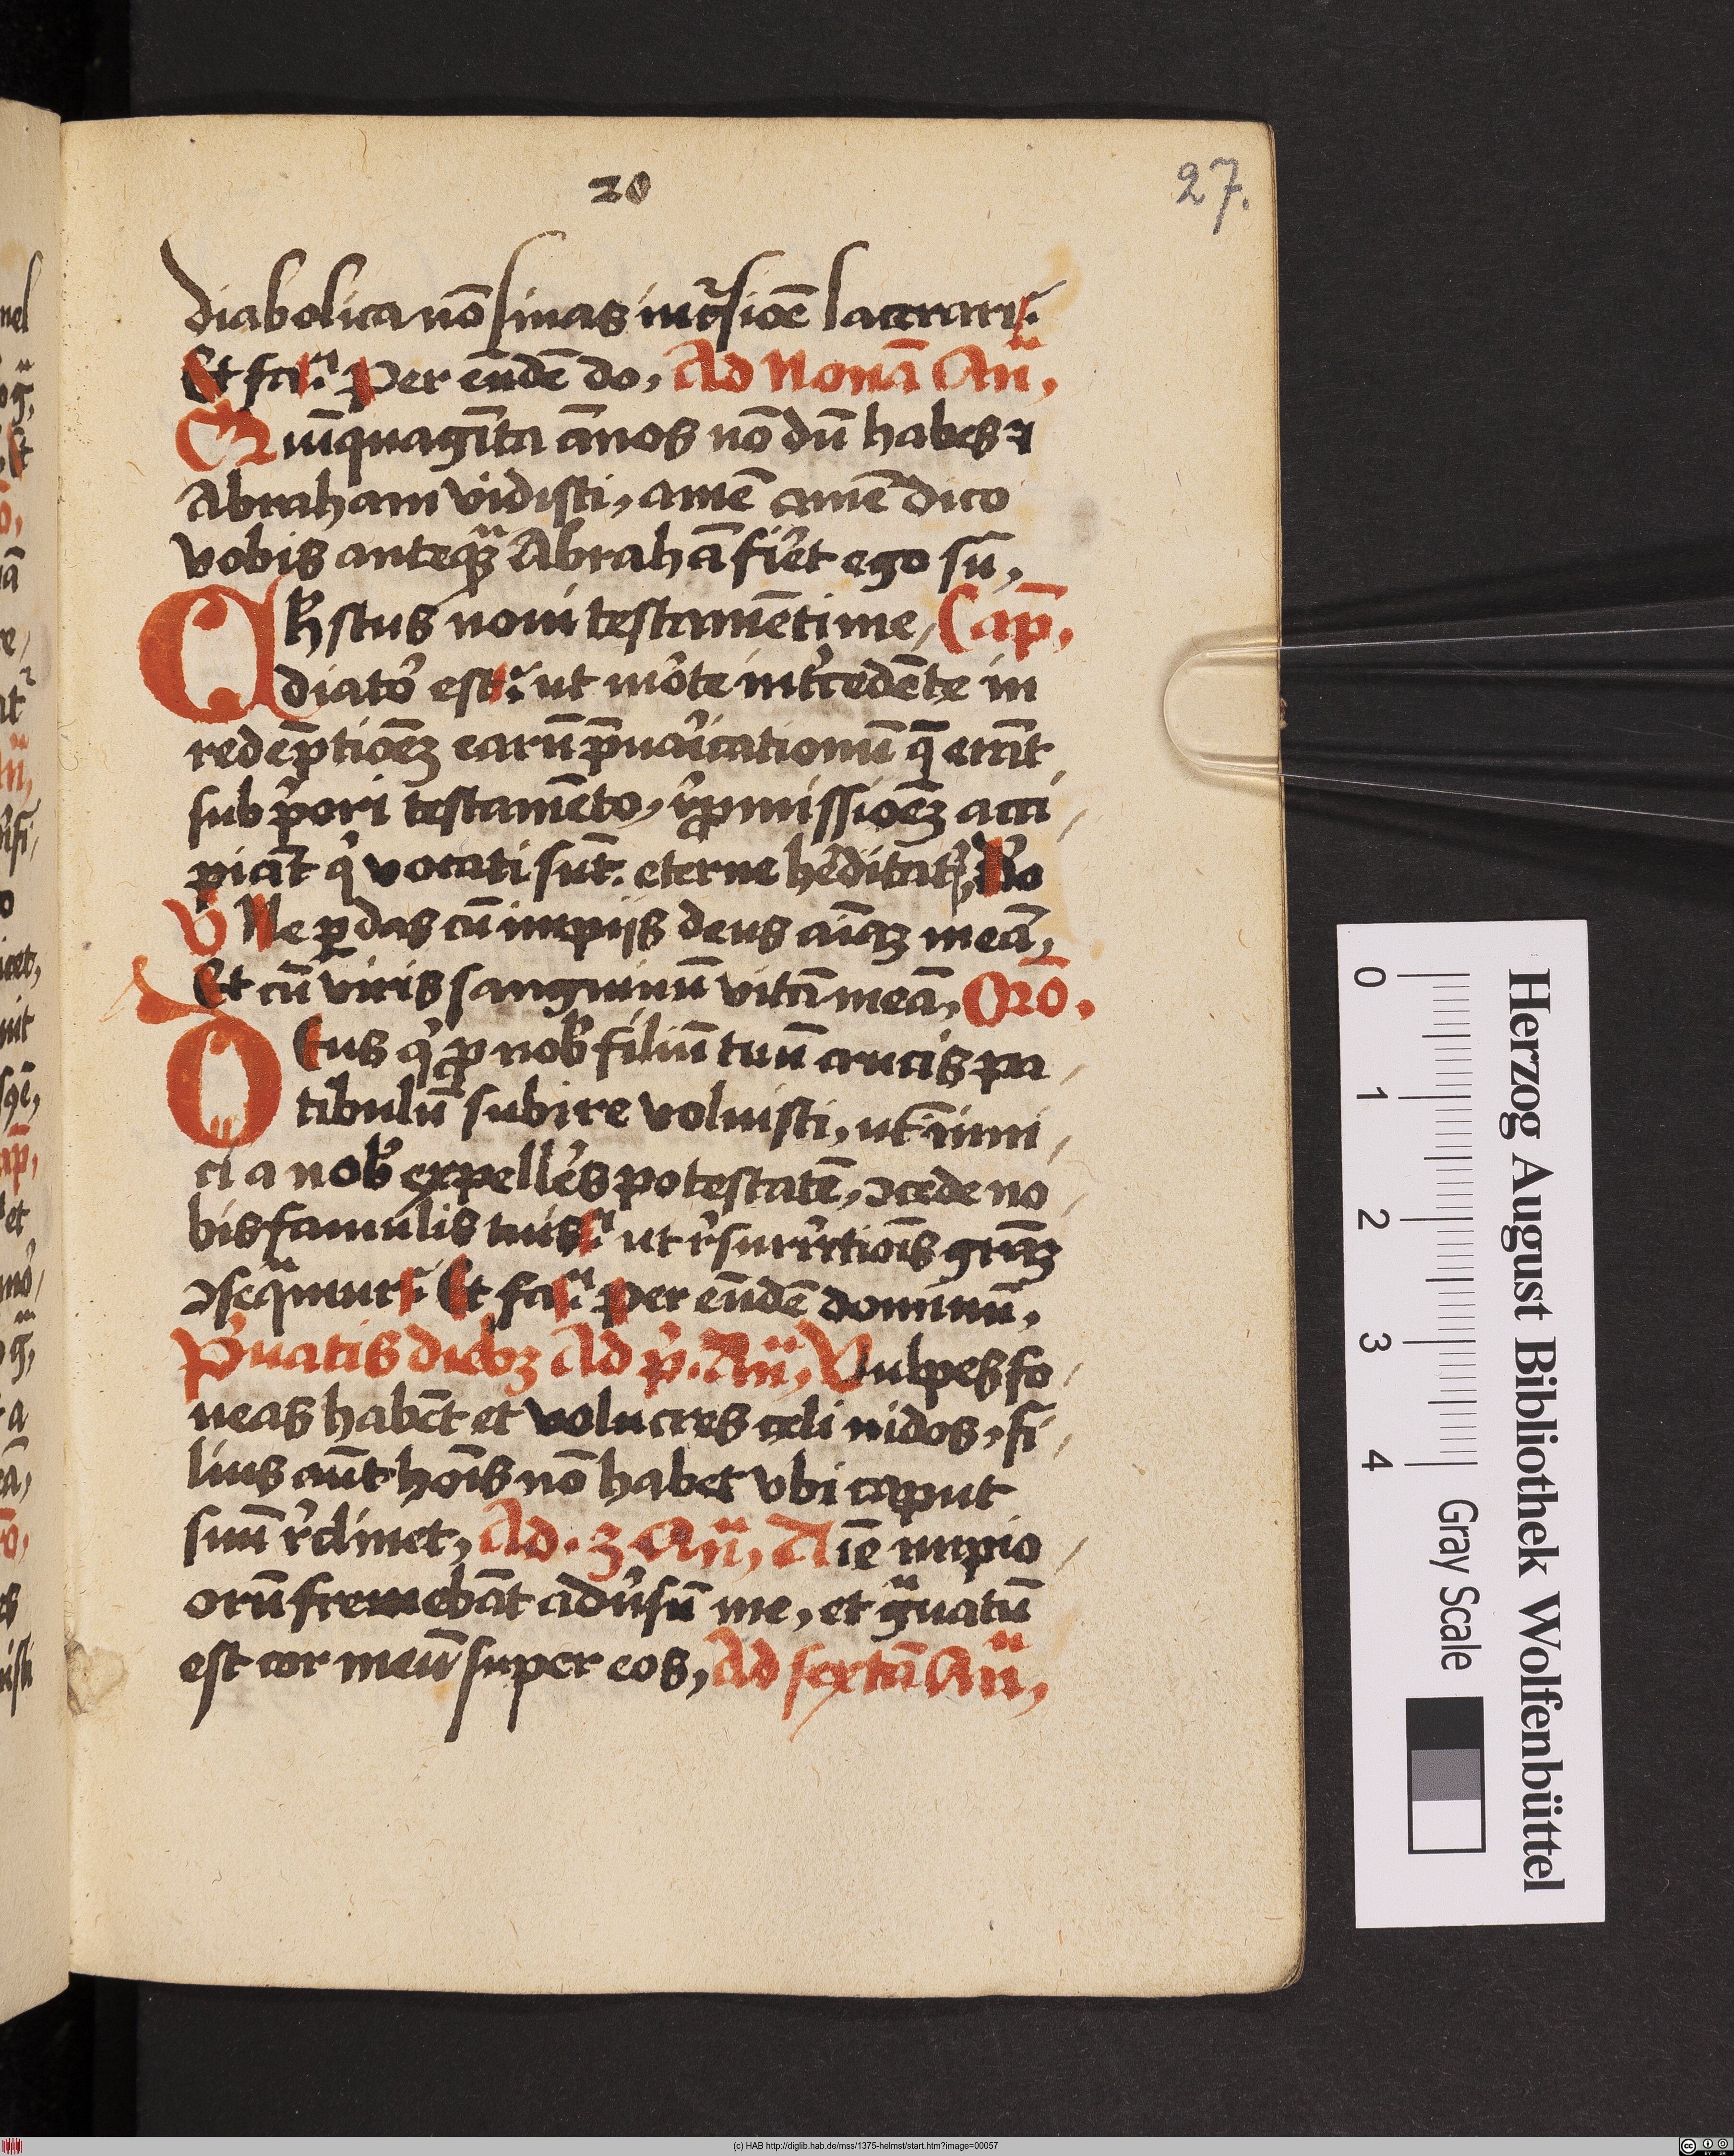 20
27.
diabolica nō sinas incr̄sioē lacerari.
Et fa. Per eūdē do, Ad Nonā An̄,
Quīquagīta ānos nō dū habes ⁊
Abraham vidisti, amē amē dico
vobis anteqꝫ Abrahā fiēt ego sū,
Christus novi testamēti me, Cap̄,
diato᷒ est: ut mōte int᷒cedēte in
redēptioēꝫ earū p̄uaīcationū q̄ erāt
sub p̄ori testamēto, r̄ꝓmissioēꝫ acci
piāt q̇ vocati sūt. eterne hēditatꝭ, Vo
V Ne ꝑdas cū impijs deus aīaꝫ meā,
Et cū viris sanguinū vitā meā, Orō,
Deus q̇ ꝓ nob᷒ filiū tuū crucis pa
tibulū subire voluisti, ut īnimi
ci a nob᷒ expellēs potestatē, ↄcede no
bis famulis tuis: ut r̄surr̄rtioīs grāꝫ
ↄseqͣmur. Et fa. Per eūdē dominū,
P᷒uatis diebꝫ Ad p᷒. An̄, Vulpes fo
ueas habēt et volucres celi nidos, fi
lius aūt hoīs nō habet vbi caput
suū r̄clinet, Ad. 3 An̄, Aciē impio
orū fremebāt adūsū me, et gͣuatū
est cor meū super eos, Ad sextā An̄,
Herzog August Bibliothek Wolfenbüttel
0 1 2 3 4 Gray Scale
(c) HAB http://diglib.hab.de/mss/1375-helmst/start.htm?image=00057